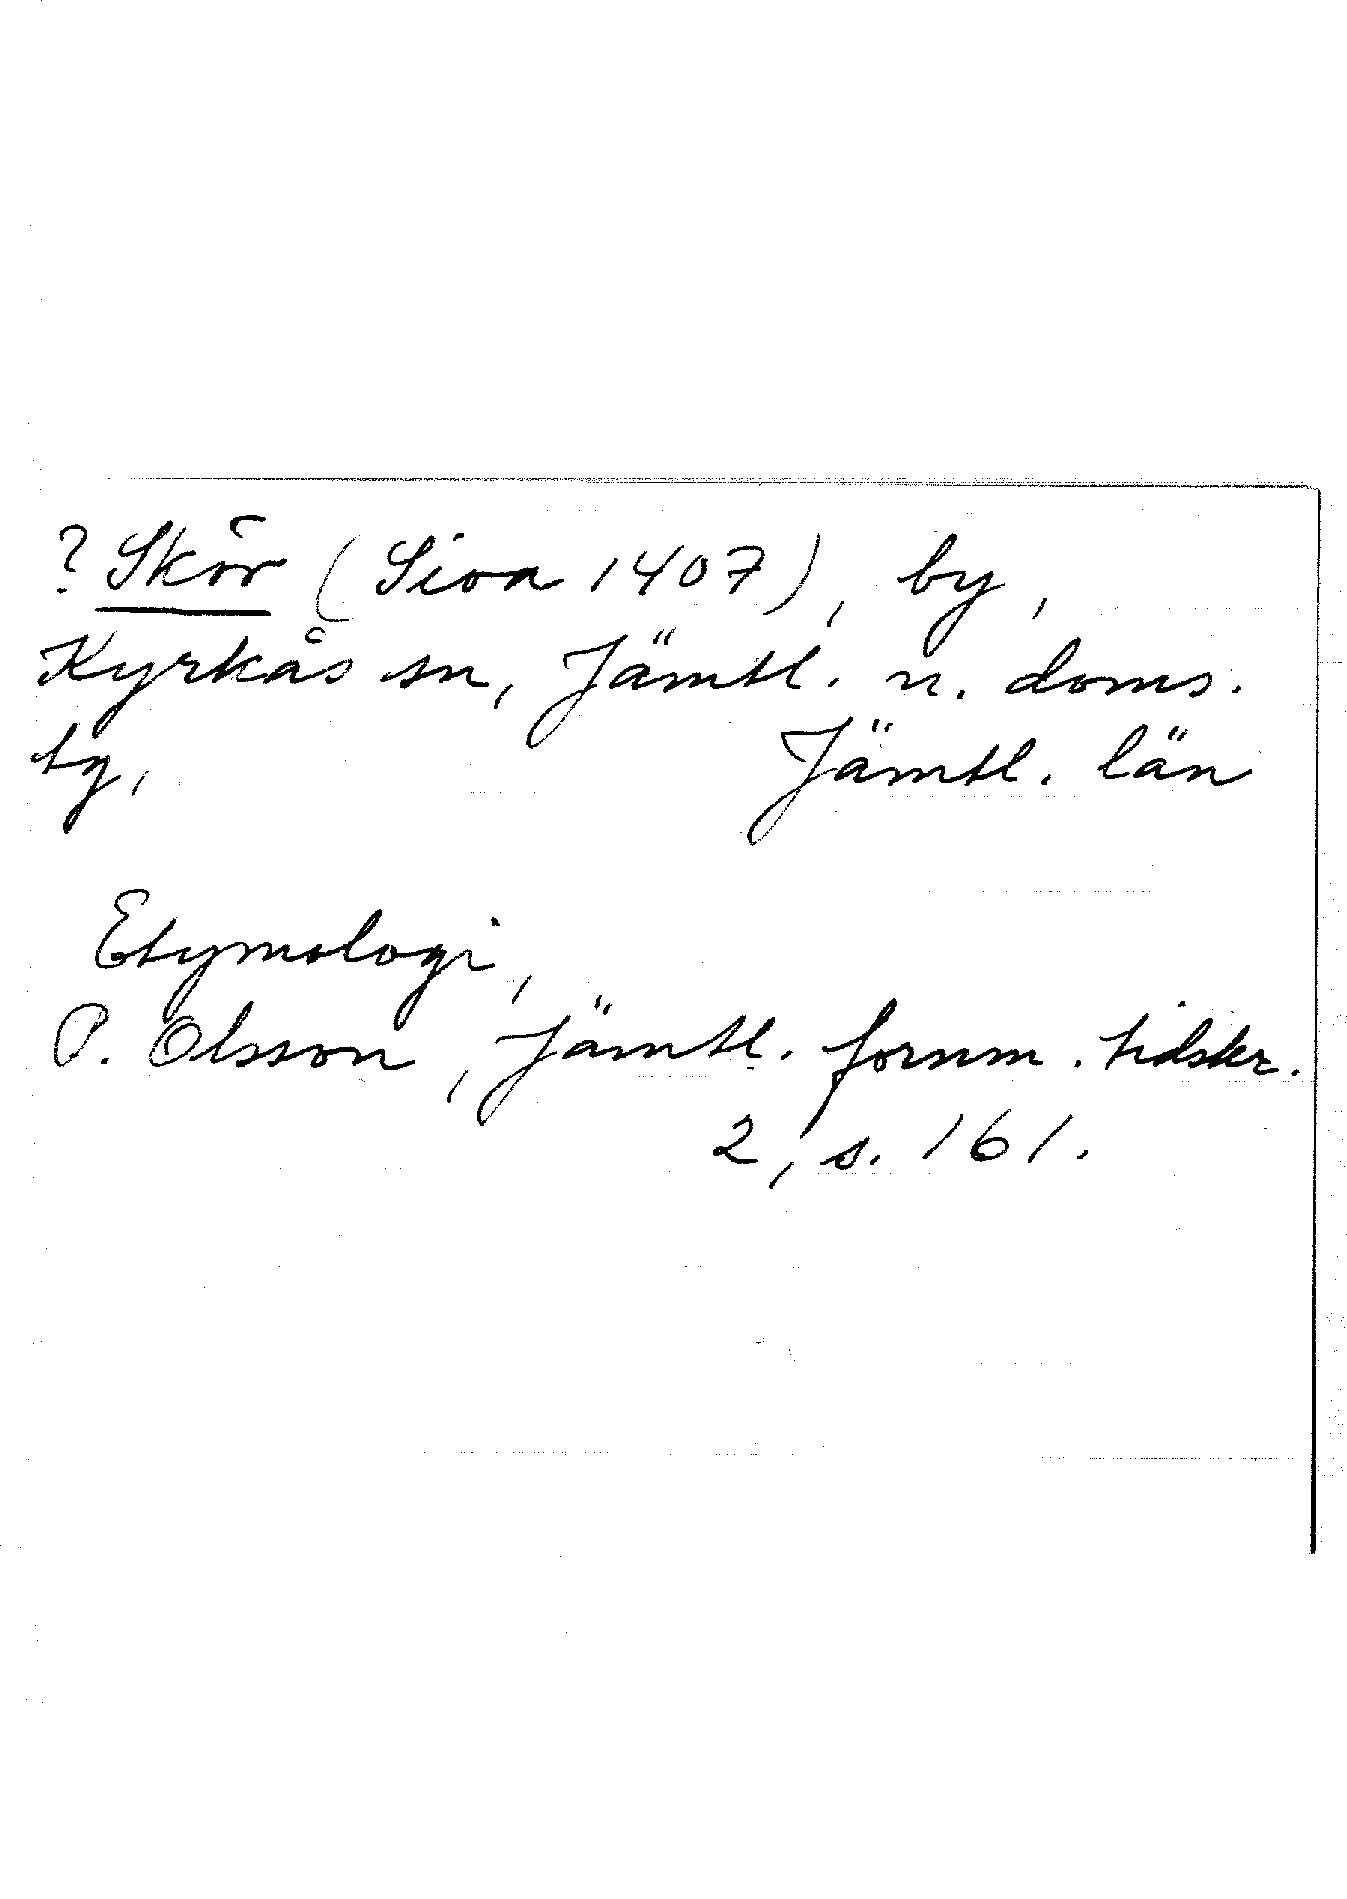 ? Skör (Sioa 1407), by,
Kyrkås sn, Jämtl. n. doms.
tg, Jämtl. län
Etymologi,
P. Olsson, Jämtl. fornm. tidskr.
2, s. 161.